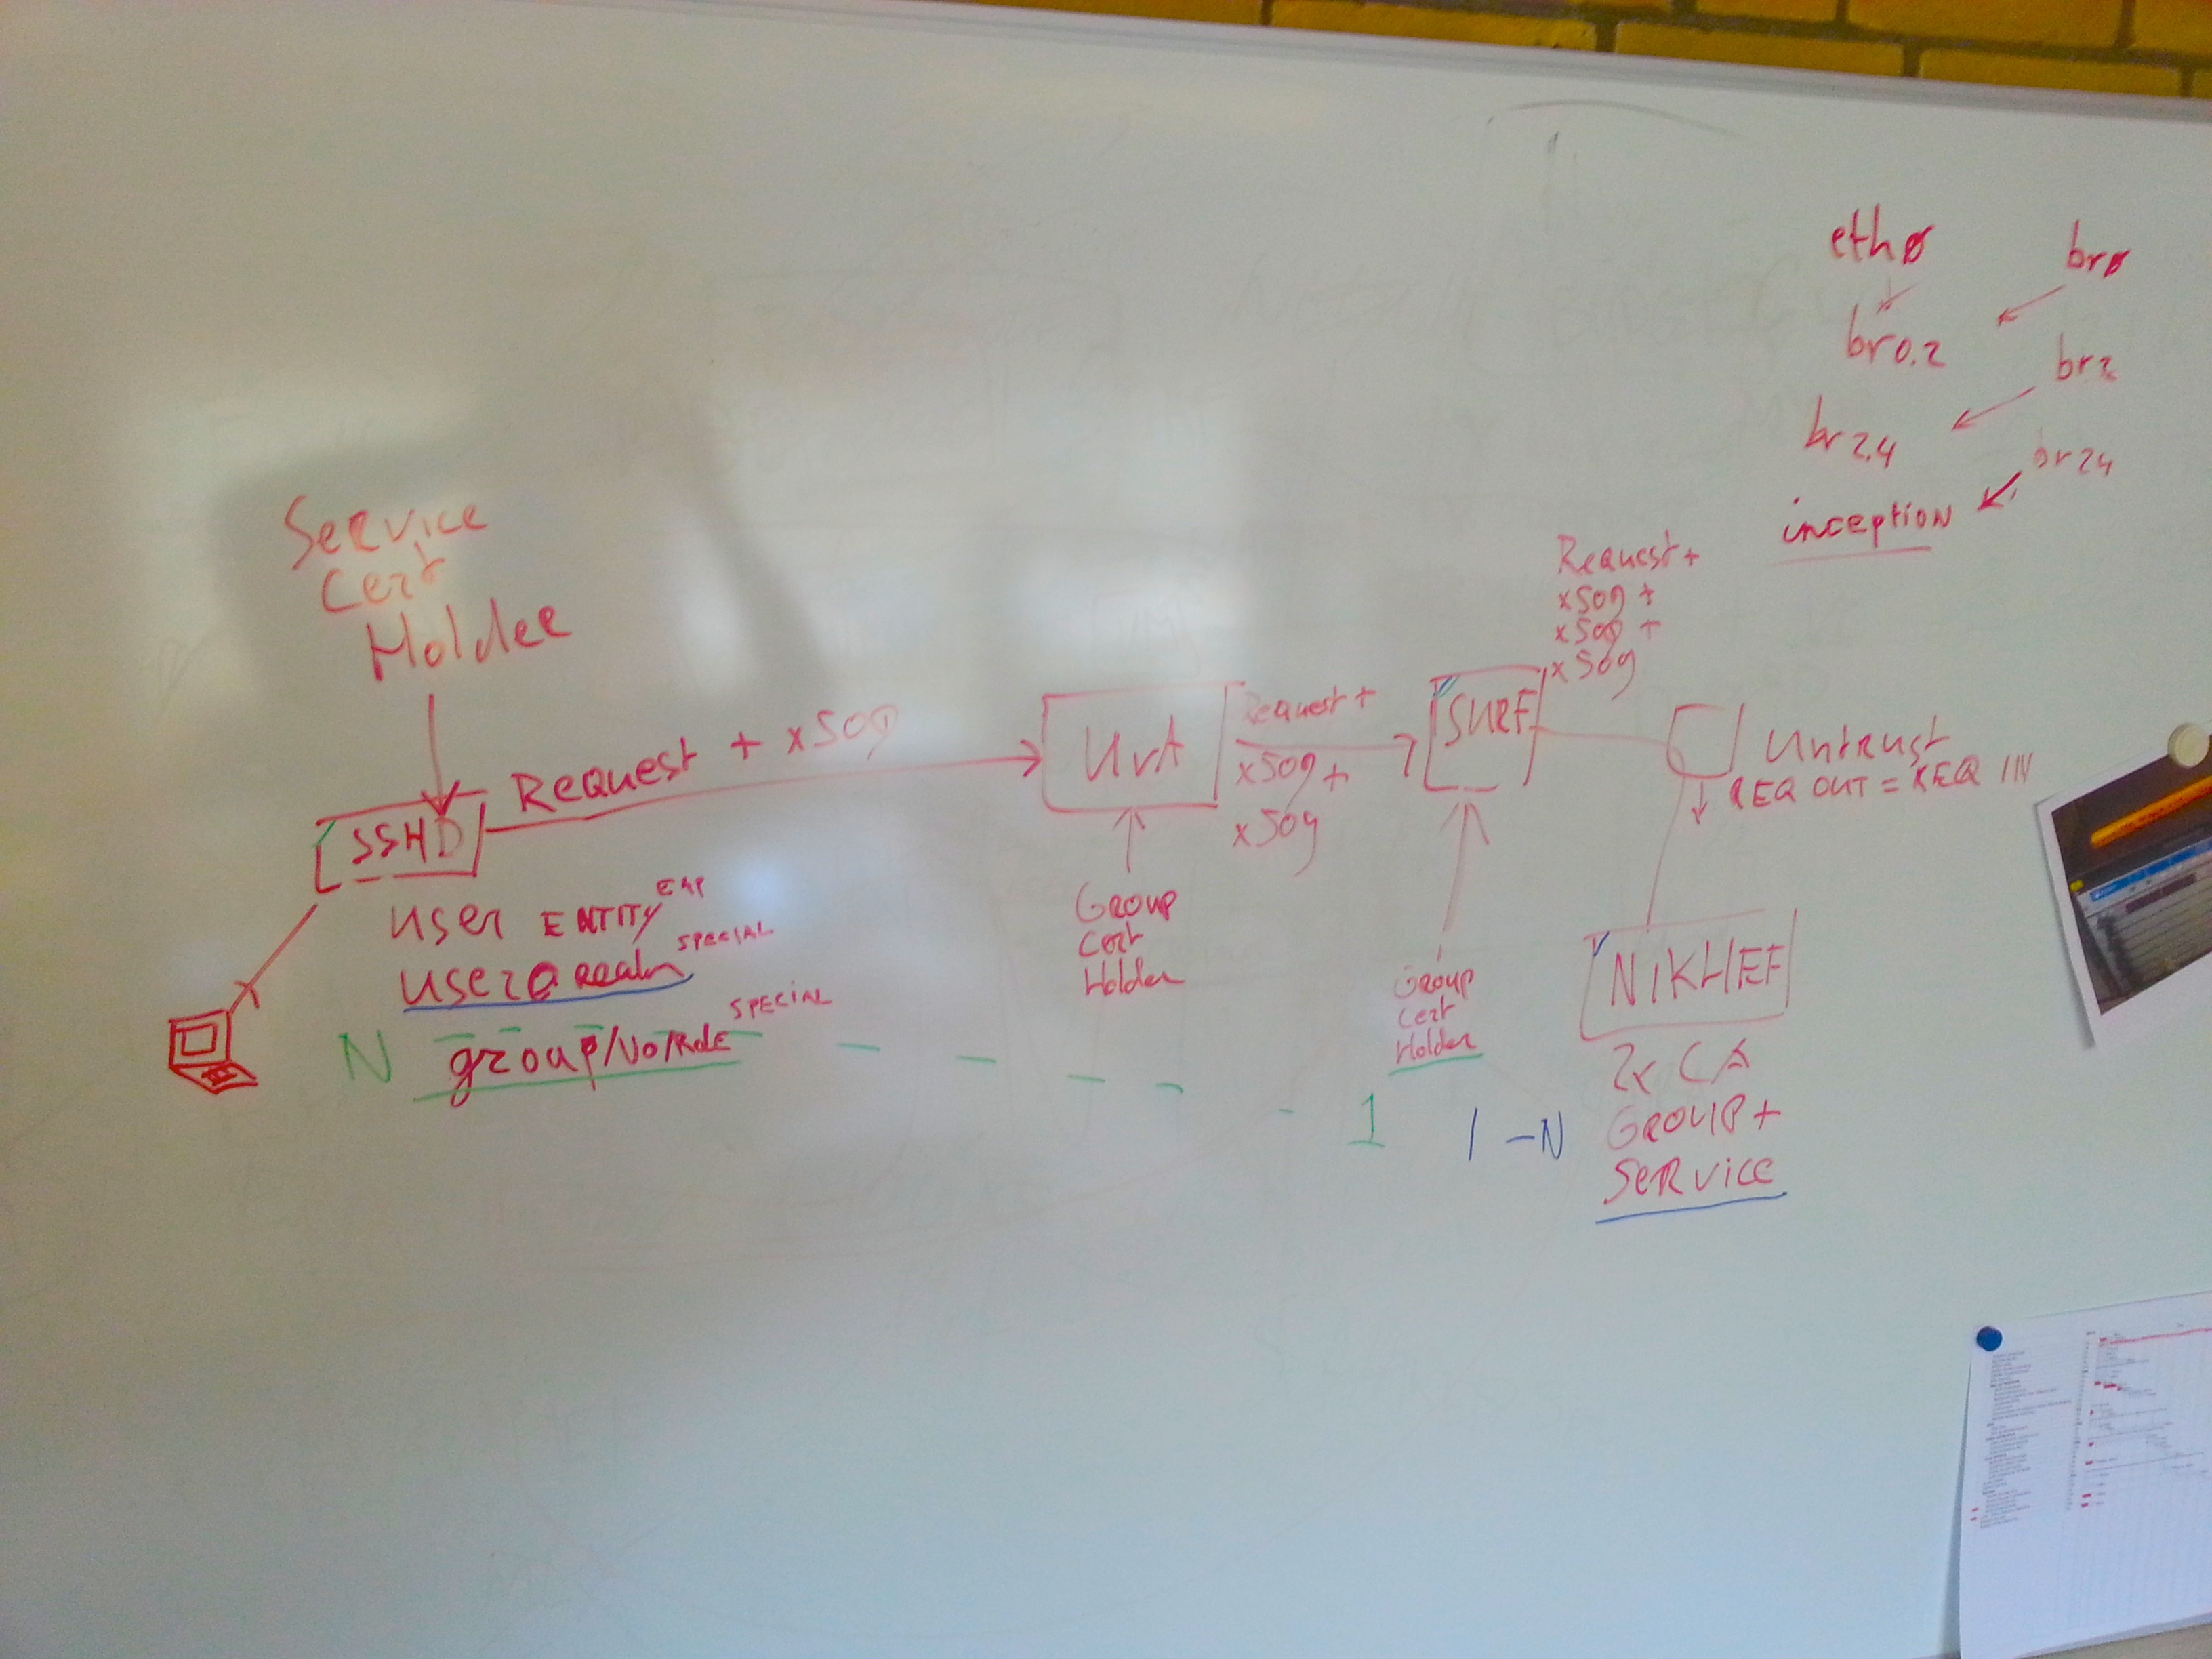 ethø
brø
br0.2
br2
br2.4
br24
inception
Service
Cert
Holder
SSHD
Request + x509
UvA
Request +
x509 +
x509
SURF
Request +
x509 +
x509 +
x509
Untrust
REQ OUT = REQ IN
user ENTITY
user@Realm SPECIAL
N group/Vo/Role SPECIAL
1
1 - N
Group
Cert
Holder
Group
Cert
Holder
NIKHEF
2x CA
GROUP +
SERVICE